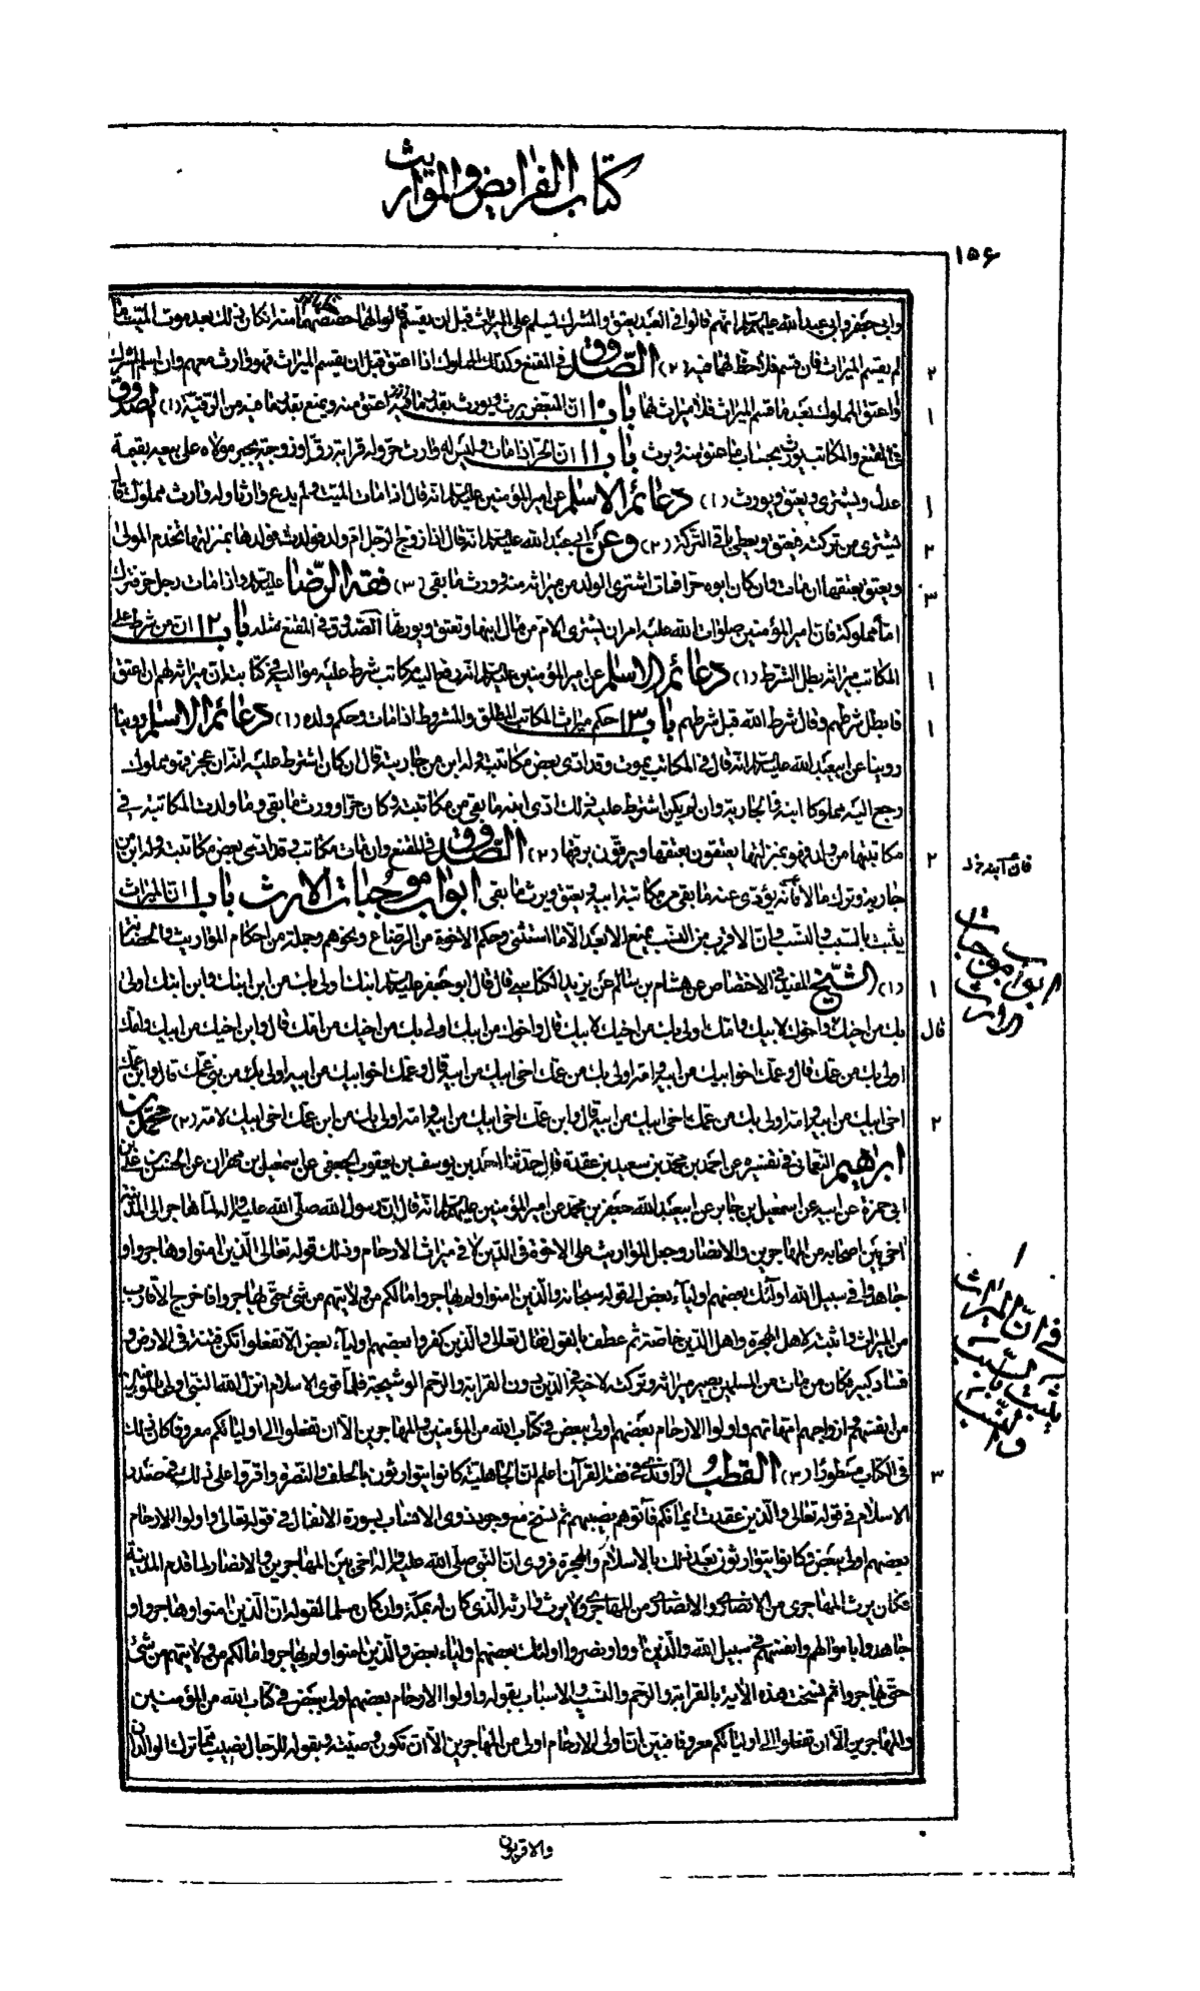 كتاب الفرايض والمواريث
١٥٦
وابي جعفر وابي عبد الله عليهم السلام انهم قالوا في العبد يعتق والمشرك يسلم على الميراث قبل ان يقسم قالوا لهما حصتهما منه اذا كان ذلك بعد موت الميت ما
لم يقسم الميراث فان قسم فلا حظ لهما فيه (٢) الصدوق في المقنع وكذلك المملوك اذا اعتق قبل ان يقسم الميراث فهو وارث معهم وان اسلم المشرك
٢
او اعتق المملوك بعد ما قسم الميراث فلا ميراث لهما باب ١٠ ان المبعض يرث ويورث بقدر ما فيه اعتق منه ويمنع بقدر ما فيه من الرقية (١) الصدوق
١
في المقنع والمكاتب يورث بحساب ما عتق منه ويرث باب ١١ ان الحر اذا مات وليس له وارث حر وله قرابة رق او زوجة يجبر مولاه على بيعه بقيمة
عدل ويشترى ويعتق ويورث (١) دعائم الاسلام عن امير المؤمنين عليه السلام انه قال اذا مات الميت ولم يدع وارثا وله وارث مملوك قال
١
يشترى من تركته فيعتق ويعطى باقي التركة (٢) وعن ابي عبد الله عليه السلام انه قال اذا زوج الرجل ام ولد فولدت فولدها بمنزلتها تخدم المولى
٢
ويعتق بعتقها ان مات وان كان ابوه حرا فمات اشترى الولد من ميراثه منه وورث ما بقي (٣) فقه الرضا عليه السلام واذا مات رجل حر فترك
٣
اما مملوكة فان امير المؤمنين صلوات الله عليه امر ان يشترى الام من مال ابنها وتعتق ويورثها الصدوق في المقنع مثله باب ١٢ ان من شرط على
المكاتب ميراثه بطل الشرط (١) دعائم الاسلام عن امير المؤمنين عليه السلام انه رفع اليه مكاتب شرط عليه مواليه في كتابته ان ميراثه لهم ان اعتق
١
فابطل شرطهم وقال شرط الله قبل شرطهم باب ١٣ حكم ميراث المكاتب المطلق والمشروط اذا مات وحكم ولده (١) دعائم الاسلام روينا
١
روينا عن ابي عبد الله عليه السلام انه قال في المكاتب يموت وقد ادى بعض مكاتبته وله ابن من جارية قال ان كان اشترط عليه انه ان عجز فهو مملوك
رجع اليه مملوكا ابنه والجارية وان لم يكن اشترط عليه ذلك ادى ابنه ما بقي من مكاتبته وكان حرا وورث ما بقي وما ولدت المكاتبة في
مكاتبتها من ولد فهو بمنزلتها يعتقون بعتقها ويرقون برقها (٢) الصدوق في المقنع وان مات مكاتب وقد ادى بعض مكاتبته وله ابن من
٢
فان ابنه خ ل
جارية وترك مالا فانه يؤدى عنه ما بقي من مكاتبة ابيه ويعتق ويرث ما بقي ابواب موجبات الارث باب ١ ان الميراث
يثبت بالسبب والنسب وان الاقرب من النسب يمنع الابعد الا ما استثنى وحكم الاخوة من الرضاع ونحوهم وجملة من احكام المواريث والحضانة
ابواب موجبات الارث
(١) الشيخ المفيد في الاختصاص عن هشام بن سالم عن يزيد الكناسي قال قال ابو جعفر عليه السلام ابنك اولى بك من ابن ابنك وابن ابنك اولى
١
بك من اخيك واخوك لابيك وامك اولى بك من اخيك لابيك قال واخوك من ابيك اولى بك من اخيك من امك قال وابن اخيك من ابيك وامك
قال
اولى بك من عمك قال وعمك اخو ابيك من ابيه وامه اولى بك من عمك اخي ابيك من ابيه قال وعمك اخو ابيك من ابيه اولى بك من بني عمك قال وابن عمك
اخي ابيك من ابيه وامه اولى بك من عمك اخي ابيك من ابيه قال وابن عمك اخي ابيك من ابيه وامه اولى بك من ابن عمك اخي ابيك لامه (٢) محمد بن
٢
ابراهيم النعماني في تفسيره عن احمد بن محمد بن سعيد بن عقدة قال حدثنا احمد بن يوسف بن يعقوب الجعفي عن اسمعيل بن مهران عن الحسن بن علي بن
ابي حمزة عن ابيه عن اسمعيل بن جابر عن ابي عبد الله جعفر بن محمد عن امير المؤمنين عليهم السلام انه قال ان رسول الله صلى الله عليه واله لما هاجر الى المدينة
اخى بين اصحابه من المهاجرين والانصار وجعل المواريث على الاخوة في الدين لا في ميراث الارحام وذلك قوله تعالى الذين امنوا وهاجروا و
١ في ان الميراث يثبت بالنسب والسبب
جاهدوا في سبيل الله اولئك بعضهم اولياء بعض الى قوله سبحانه والذين امنوا ولم يهاجروا ما لكم من ولايتهم من شئ حتى يهاجروا فاخرج الاقارب
من الميراث واثبته لاهل الهجرة واهل الدين خاصة ثم عطف بالقول فقال تعالى والذين كفروا بعضهم اولياء بعض الا تفعلوا تكن فتنة في الارض و
فساد كبير فكان من مات من المسلمين يصير ميراثه وتركته لاخيه في الدين دون القرابة والرحم الوشيجة فلما قوى الاسلام انزل الله النبي اولى بالمؤمنين
من انفسهم وازواجه امهاتهم واولوا الارحام بعضهم اولى ببعض في كتاب الله من المؤمنين والمهاجرين الا ان تفعلوا الى اوليائكم معروفا كان ذلك
في الكتاب مسطورا (٣) القطب الراوندي في فقه القرآن اعلم ان الجاهلية كانوا يتوارثون بالحلف والنصرة واقروا على ذلك في صدر
٣
الاسلام في قوله تعالى والذين عقدت ايمانكم فآتوهم نصيبهم ثم نسخ مع وجود ذوى الانساب بسورة الانفال في قوله تعالى واولوا الارحام
بعضهم اولى ببعض وكانوا يتوارثون بعد ذلك بالاسلام والهجرة فروى ان النبي صلى الله عليه واله اخى بين المهاجرين والانصار لما قدم المدينة
فكان يرث المهاجري من الانصاري والانصاري من المهاجري ولا يرث وارثه الذي كان له بمكة وان كان مسلما لقوله ان الذين امنوا وهاجروا و
جاهدوا باموالهم وانفسهم في سبيل الله والذين اووا ونصروا اولئك بعضهم اولياء بعض والذين امنوا ولم يهاجروا ما لكم من ولايتهم من شئ
حتى يهاجروا ثم نسخت هذه الاية بالقرابة والرحم والنسب والاسباب بقوله واولوا الارحام بعضهم اولى ببعض في كتاب الله من المؤمنين
والمهاجرين الا ان تفعلوا الى اوليائكم معروفا فبين ان اولى الارحام اولى من المهاجرين الا ان تكون وصية وبقوله للرجال نصيب مما ترك الوالدان
والاقربون